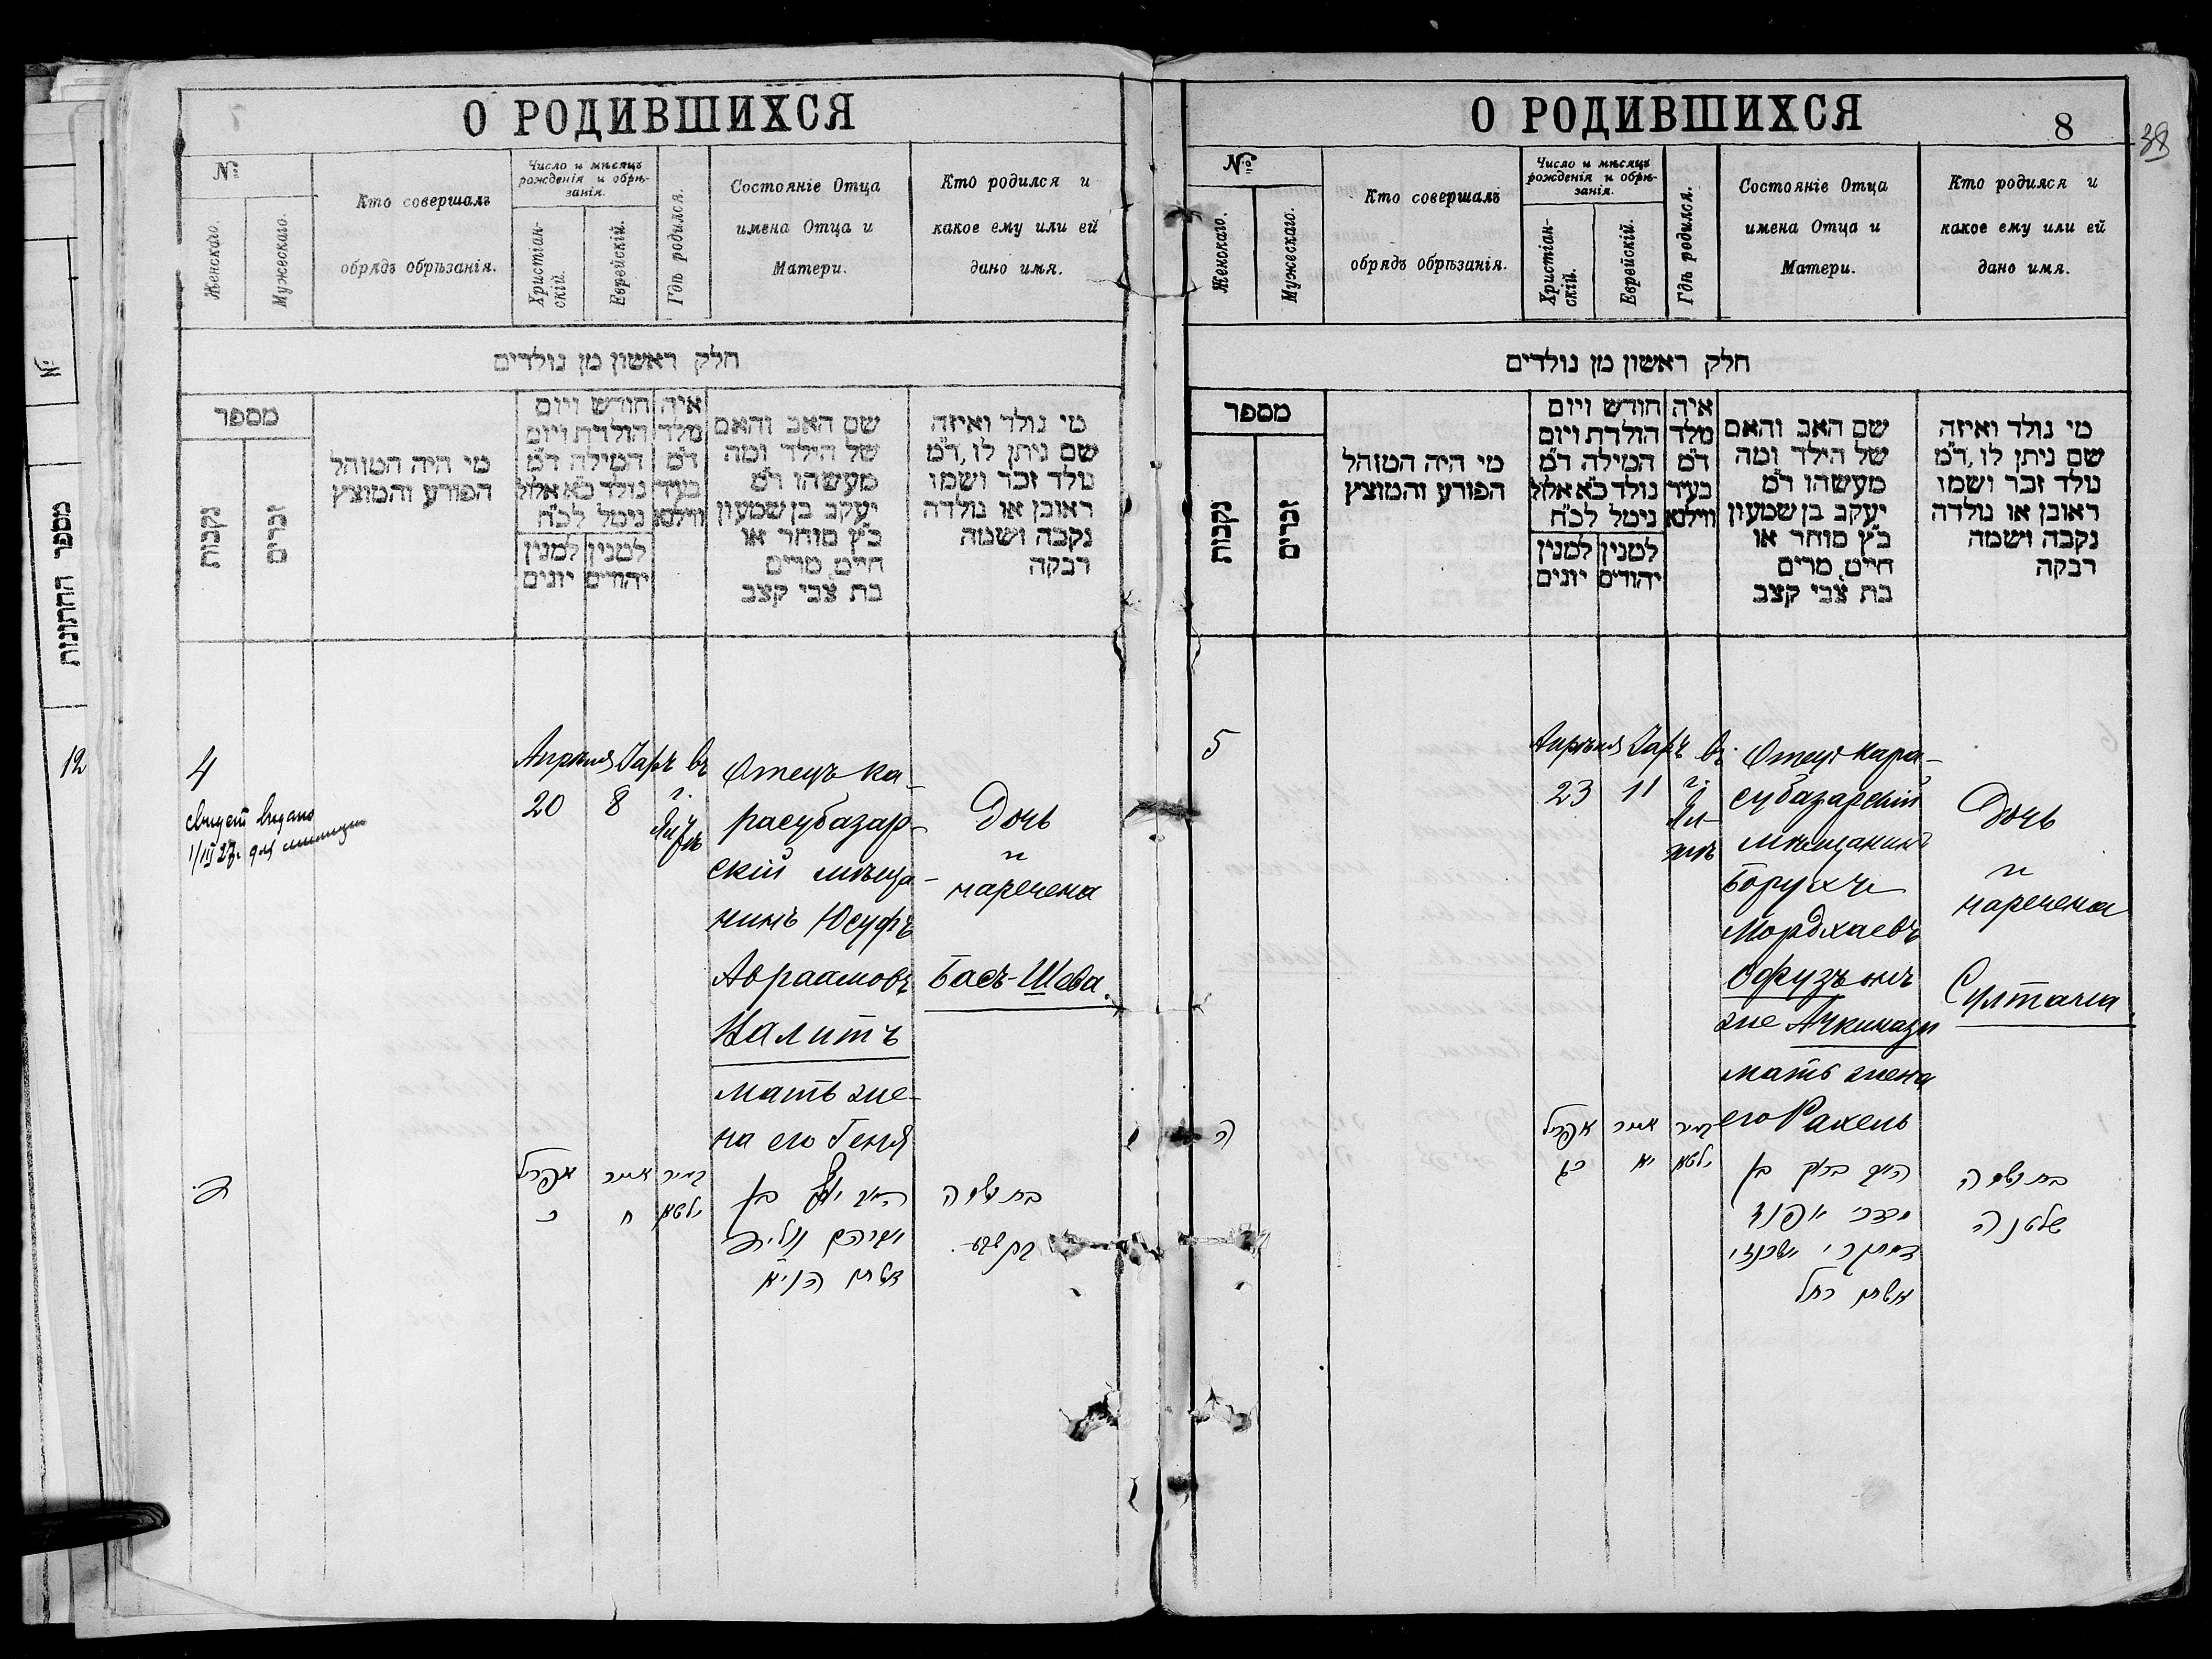 О РОДИВШИХСЯ
№
Женскаго.
Мужескаго.
Кто совершалъ
обрядъ обрѣзанія.
Число и мѣсяцъ
рожденія и обрѣ-
занія.
Христіан-
скій.
Еврейскій.
Гдѣ родился.
Состояніе Отца
имена Отца и
Матери.
Кто родился и
какое ему или ей
дано имя.
חלק ראשון מן נולדים
מספר
נקבות
זכרים
מי היה המוהל
הפורע והמוצץ
חודש ויום
הולדת ויום
המילה ד״מ
נולד כ״א אלול
נימל לכ״ח
למנין
יהודים
למנין
יונים
איה
מלד
ד״מ
בעיר
ווילנא
שם האב והאם
של הילד ומה
מעשהו ד״מ
יעקב בן שמעון
כ״ץ סוחר או
חייט מרים
בת צבי קצב
מי נולד ואיזה
שם ניתן לו, ד״מ
נולד זכר ושמו
ראובן או נולדה
נקבה ושמה
רבקה
4
Апрѣля
20
Іаръ
8
въ
г.
Отецъ ка-
расубазар-
скій мѣща-
нинъ Юсуфъ
Авраамовъ
Налитъ
мать же-
на его Геня
Дочь
и
наречена
Басъ-Шева.
אפריל
כ
אייר
ח
בעיר
ילטא
О РОДИВШИХСЯ
8
38
№
Женскаго.
Мужескаго.
Кто совершалъ
обрядъ обрѣзанія.
Число и мѣсяцъ
рожденія и обрѣ-
занія.
Христіан-
скій.
Еврейскій.
Гдѣ родился.
Состояніе Отца
имена Отца и
Матери.
Кто родился и
какое ему или ей
дано имя.
חלק ראשון מן נולדים
מספר
נקבות
זכרים
מי היה המוהל
הפורע והמוצץ
חודש ויום
הולדת ויום
המילה ד״מ
נולד כ״א אלול
נימל לכ״ח
למנין
יהודים
למנין
יונים
איה
מלד
ד״מ
בעיר
ווילנא
שם האב והאם
של הילד ומה
מעשהו ד״מ
יעקב בן שמעון
כ״ץ סוחר או
חייט מרים
בת צבי קצב
מי נולד ואיזה
שם ניתן לו, ד״מ
נולד זכר ושמו
ראובן או נולדה
נקבה ושמה
רבקה
5
Апрѣля
23
Іаръ
11
въ
г.
Ял-
тѣ
Отецъ кара-
субазарскій
мѣщанинъ
Борухъ
Мордхаевъ
онъ
же Ачкинази
мать жена
его Рахель
Дочь
и
наречена
Султана
ה
אפריל
כג
אייר
יא
בעיר
ילטא
ברוך בן
מרדכי
אשתו רחל
שלטנה
12
№
מספר החתונות